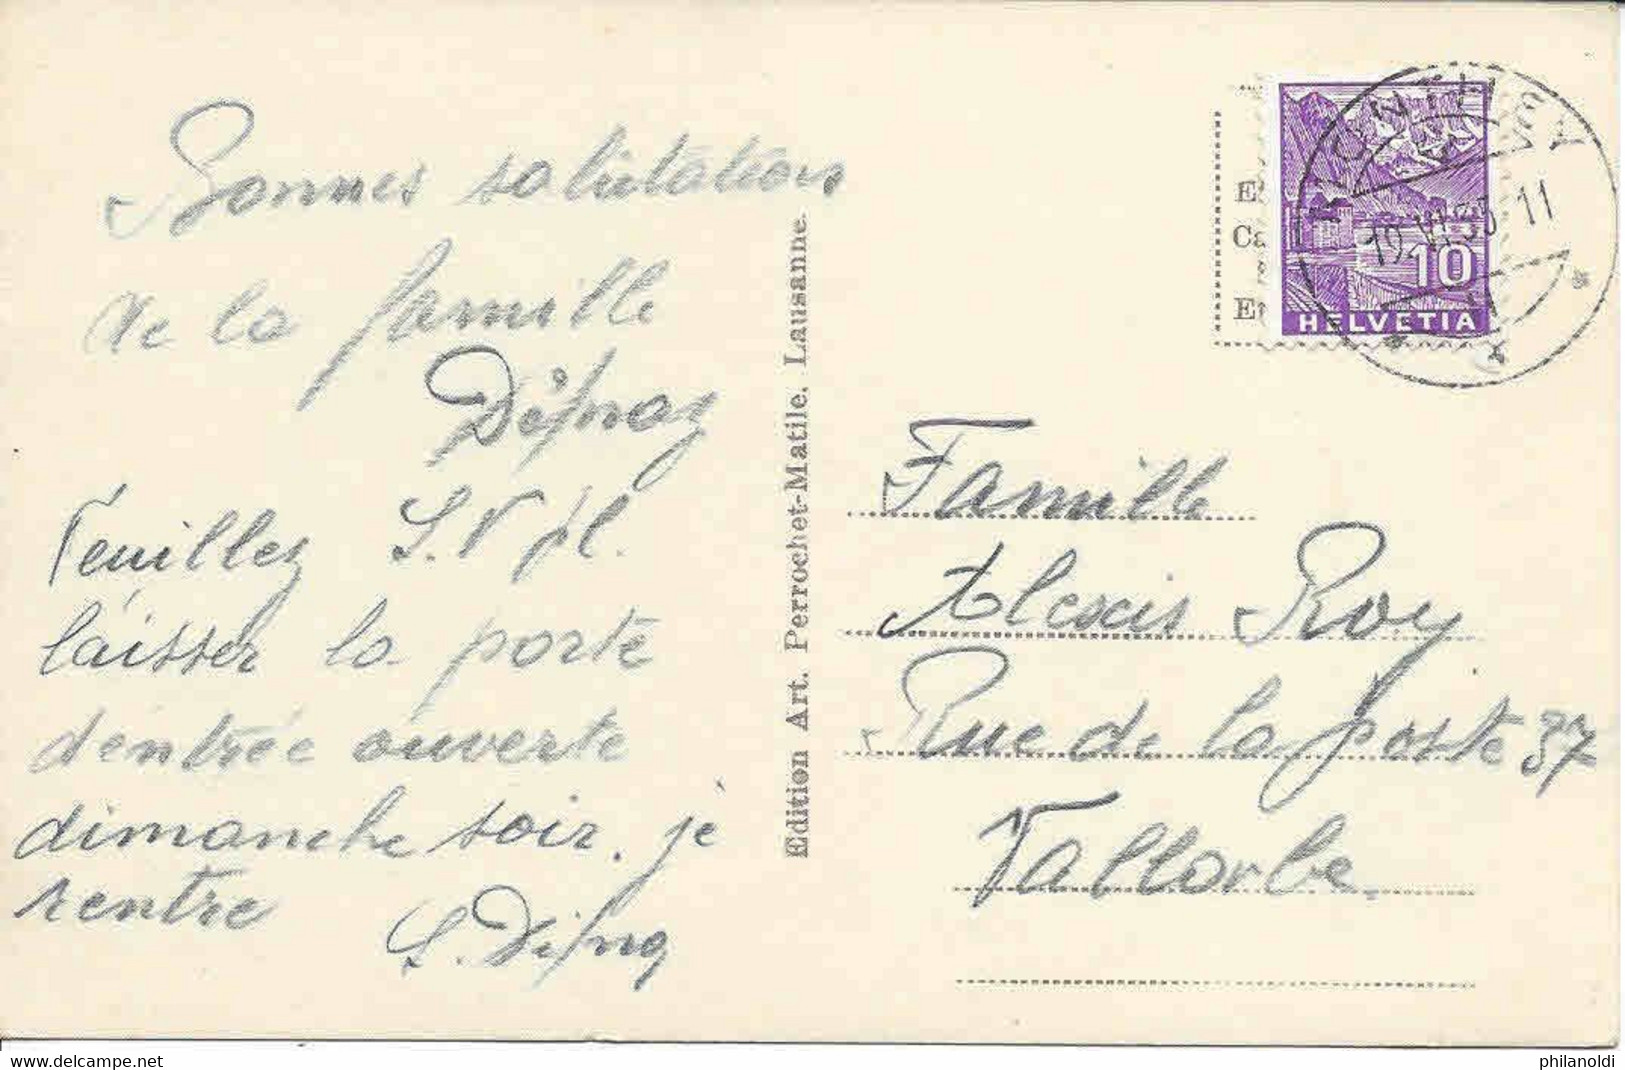 Bonnes salutations
de la famille
Veuillez S.V pl.
laisser la porte
d'entrée ouverte
dimanche soir, je
rentre
Edition Art. Perrochet-Matile, Lausanne.
10
HELVETIA
11
Famille
Alexis Roy
Rue de la poste 37
Vallorbe
Click to view full image
philanoldi